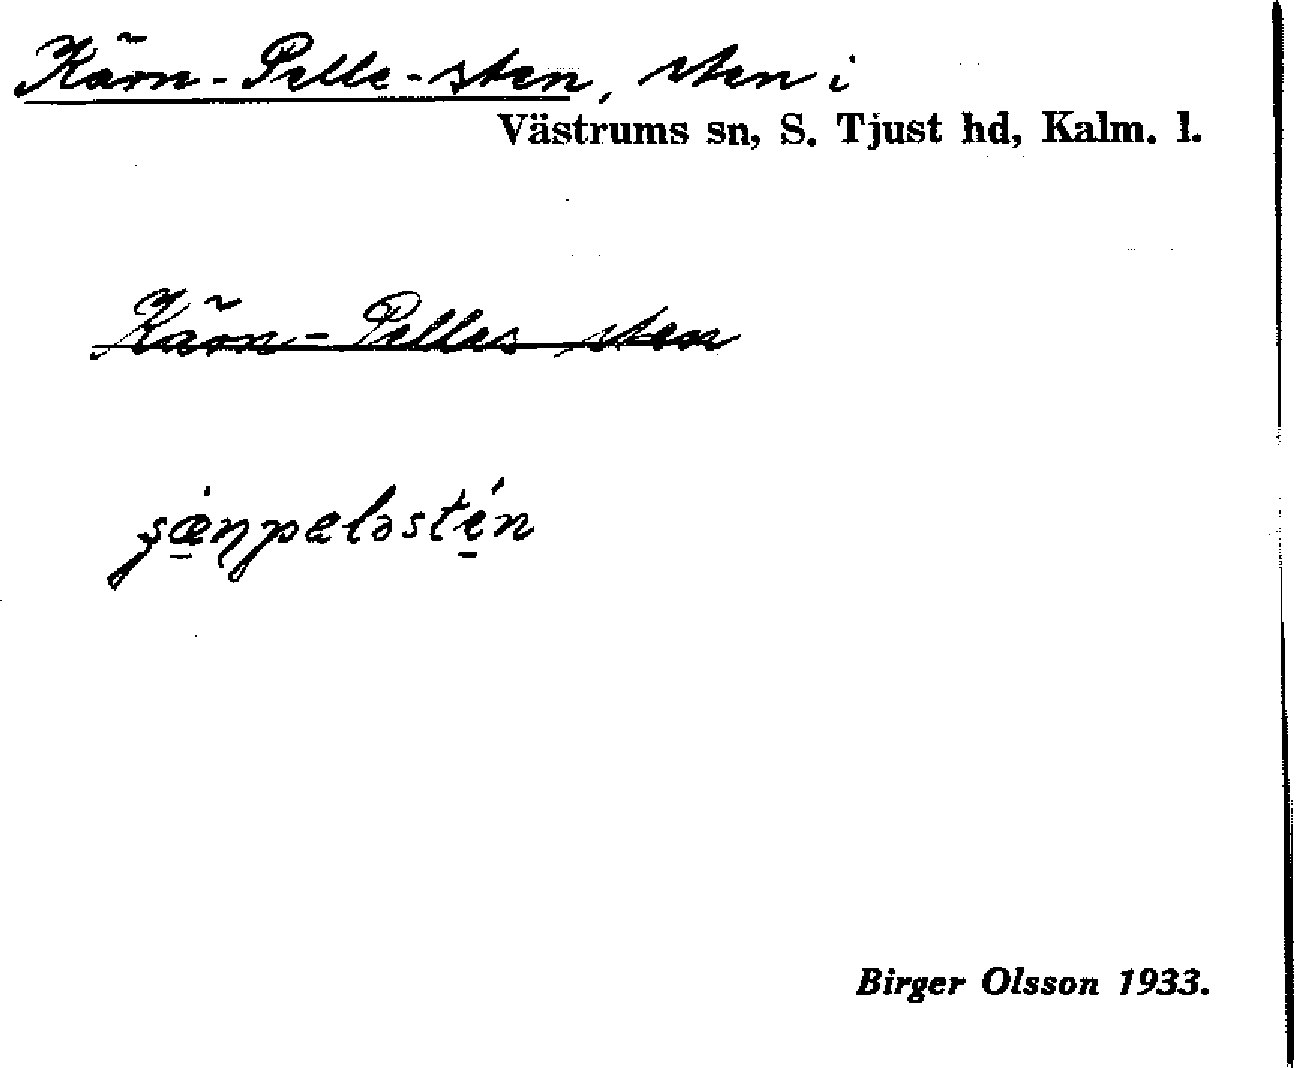 Kärn-Pelle-sten, sten i
Västrums sn, S. Tjust hd, Kalm. l.
Kärn-Pelles sten
Birger Olsson 1933.